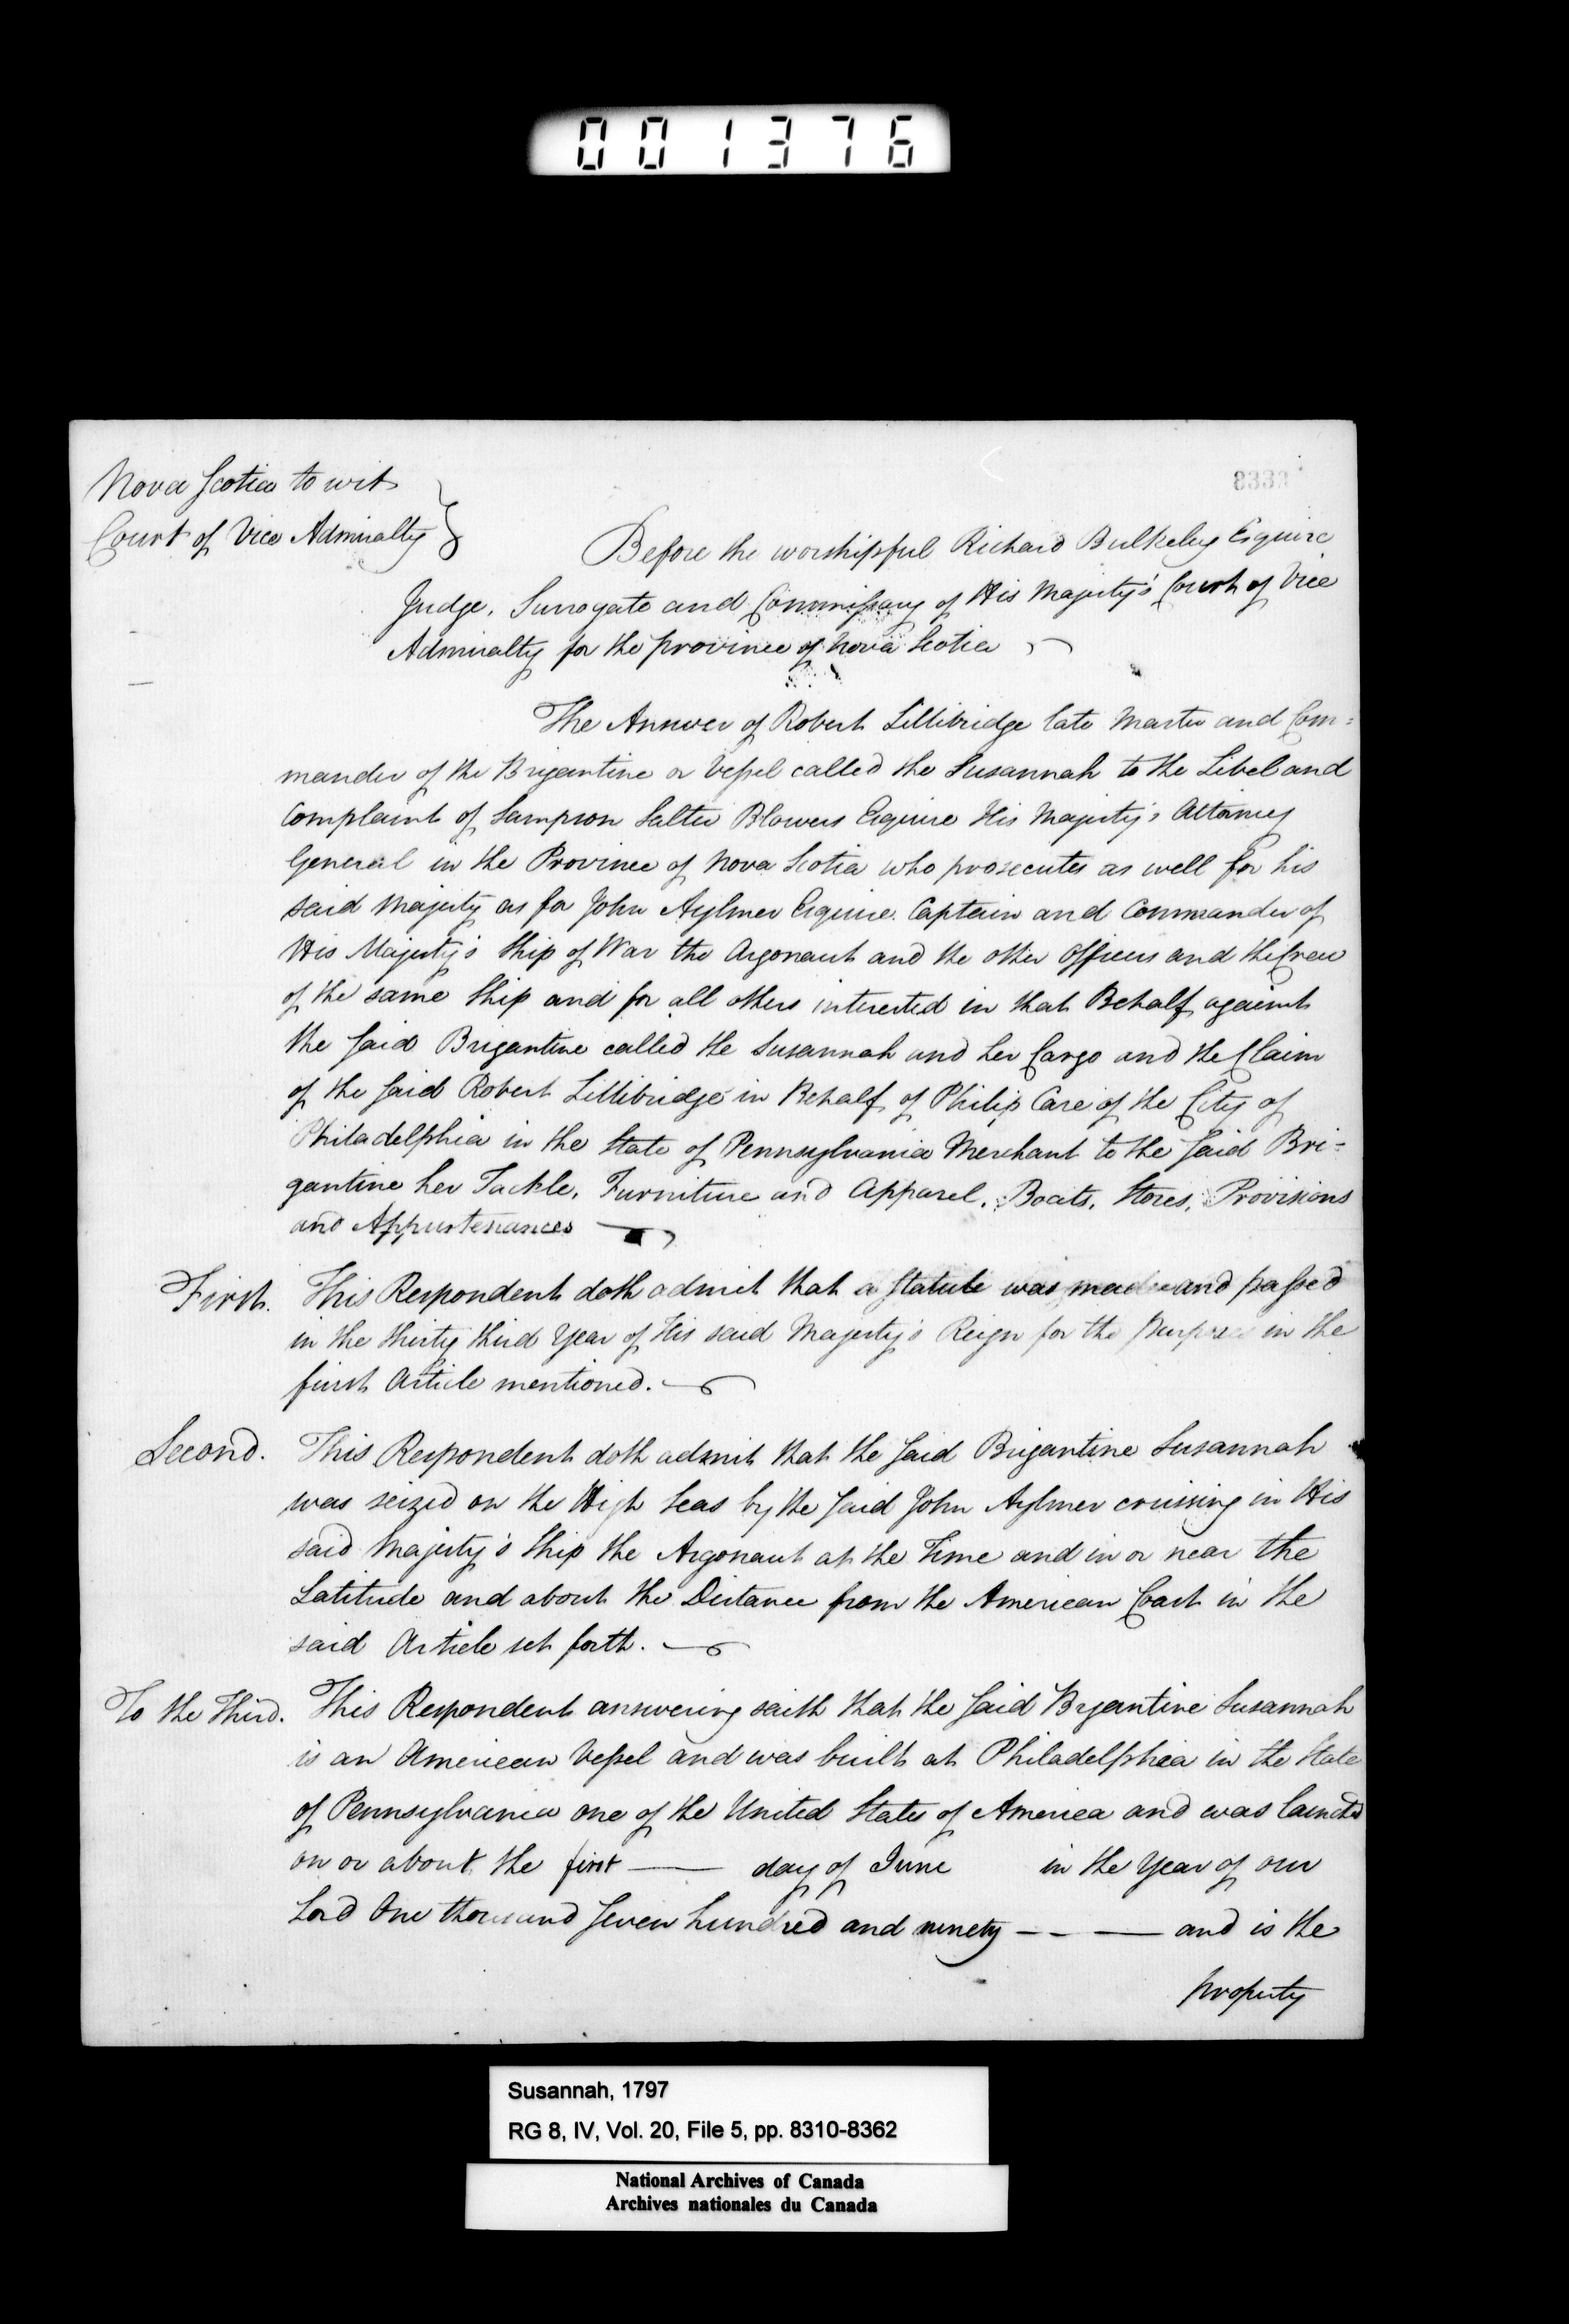 001376
8333
Nova Scotia to wit
Court of Vice Admiralty
Before the worshipful Richard Bulkeley Esquire
Judge, Surrogate and Commissary of His Majesty's Court of Vice
Admiralty for the province of Nova Scotia
The Answer of Robert Lillibridge late Master and Com=
mander of the Brigantine or Vessel called the Susannah to the Libel and
Complaint of Sampson Salter Blowers Esquire His Majesty's Attorney
General in the Province of Nova Scotia who prosecutes as well for his
said Majesty as for John Aylmer Esquire Captain and Commander of
His Majesty's Ship of War the Argonaut and the other Officers and the Crew
of the same Ship and for all others interested in that Behalf against
the said Brigantine called the Susannah and her Cargo and the Claim
of the said Robert Lillibridge in Behalf of Philip Care of the City of
Philadelphia in the State of Pennsylvania Merchant to the said Bri=
gantine her Tackle, Furniture and Apparel, Boats, Stores, Provisions
and Appurtenances
First. This Respondent doth admit that a Statute was made and passed
in the thirty third Year of His said Majesty's Reign for the Purposes in the
first Article mentioned.
Second. This Respondent doth admit that the said Brigantine Susannah
was seized on the High Seas by the said John Aylmer cruising in His
said Majesty's Ship the Argonaut at the Time and in or near the
Latitude and about the Distance from the American Coast in the
said Article set forth.
To the Third. This Respondent answering saith that the said Brigantine Susannah
is an American Vessel and was built at Philadelphia in the State
of Pennsylvania one of the United States of America and was launched
on or about the first —— day of June in the Year of our
Lord One thousand seven hundred and ninety – – —— and is the
property
Susannah, 1797
RG 8, IV, Vol. 20, File 5, pp. 8310-8362
National Archives of Canada
Archives nationales du Canada